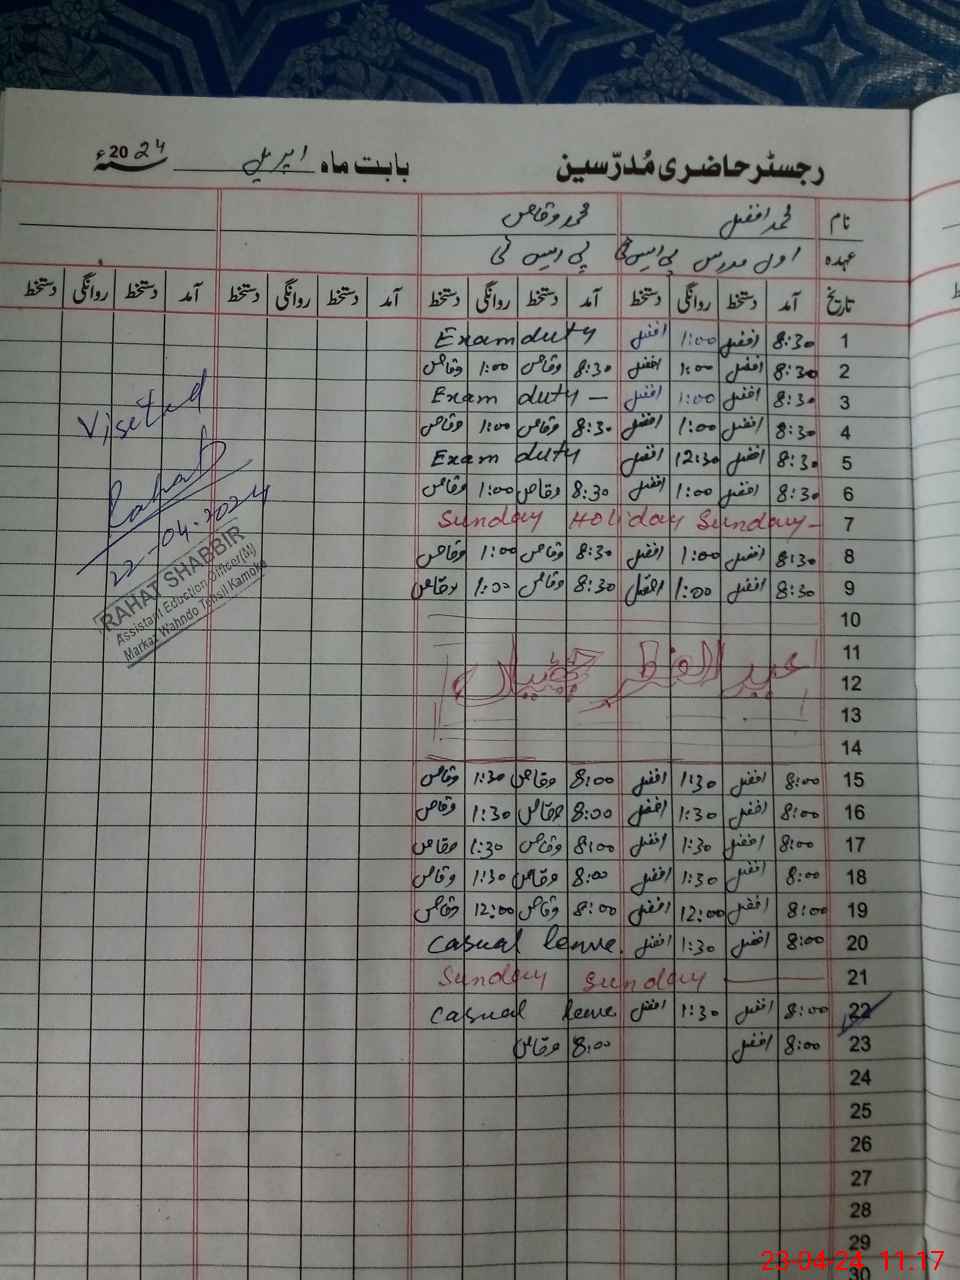 رجسٹر حاضری مُدرّسین بابت ماہ اپریل 2024ء
نام محمد افضل محمد وقاص
عہدہ اول مدرس پی ایس ٹی پی ایس ٹی
تاریخ آمد دستخط روانگی دستخط آمد دستخط روانگی دستخط آمد دستخط روانگی دستخط آمد دستخط روانگی دستخط
1 8:30 افضل 1:00 افضل Exam duty
2 8:30 افضل 1:00 افضل 8:30 وقاص 1:00 وقاص
3 8:30 افضل 1:00 افضل Exam duty –
4 8:30 افضل 1:00 افضل 8:30 وقاص 1:00 وقاص
5 8:30 افضل 12:30 افضل Exam duty
6 8:30 افضل 1:00 افضل 8:30 وقاص 1:00 وقاص
7 Sunday Holiday Sunday –
8 8:30 افضل 1:00 افضل 8:30 وقاص 1:00 وقاص
9 8:30 افضل 1:00 افضل 8:30 وقاص 1:00 وقاص
10
11
عید الفطر چھٹیاں
12
13
14
15 8:00 افضل 1:30 افضل 8:00 وقاص 1:30 وقاص
16 8:00 افضل 1:30 افضل 8:00 وقاص 1:30 وقاص
17 8:00 افضل 1:30 افضل 8:00 وقاص 1:30 وقاص
18 8:00 افضل 1:30 افضل 8:00 وقاص 1:30 وقاص
19 8:00 افضل 12:00 افضل 8:00 وقاص 12:00 وقاص
20 8:00 افضل 1:30 افضل Casual leave.
21 Sunday Sunday
22 8:00 افضل 1:30 افضل Casual leave
23 8:00 افضل 8:00 وقاص
24
25
26
27
28
29
30
Viseted
Rahat
22-04-2024
RAHAT SHABBIR
Assistant Eduction Officer(M)
Markaz Wahndo Tehsil Kamoke
23-04-24 11.17